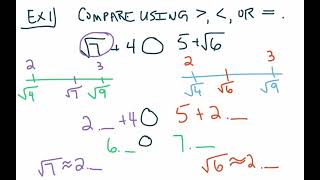 EX1) COMPARE USING >, <, OR = .
√7 + 4 ◯ 5 + √6
2 3 2 3
√4 √7 √9 √4 √6 √9
2._ + 4 ◯ 5 + 2._
6._ ◯ 7._
√7 ≈ 2._ √6 ≈ 2._